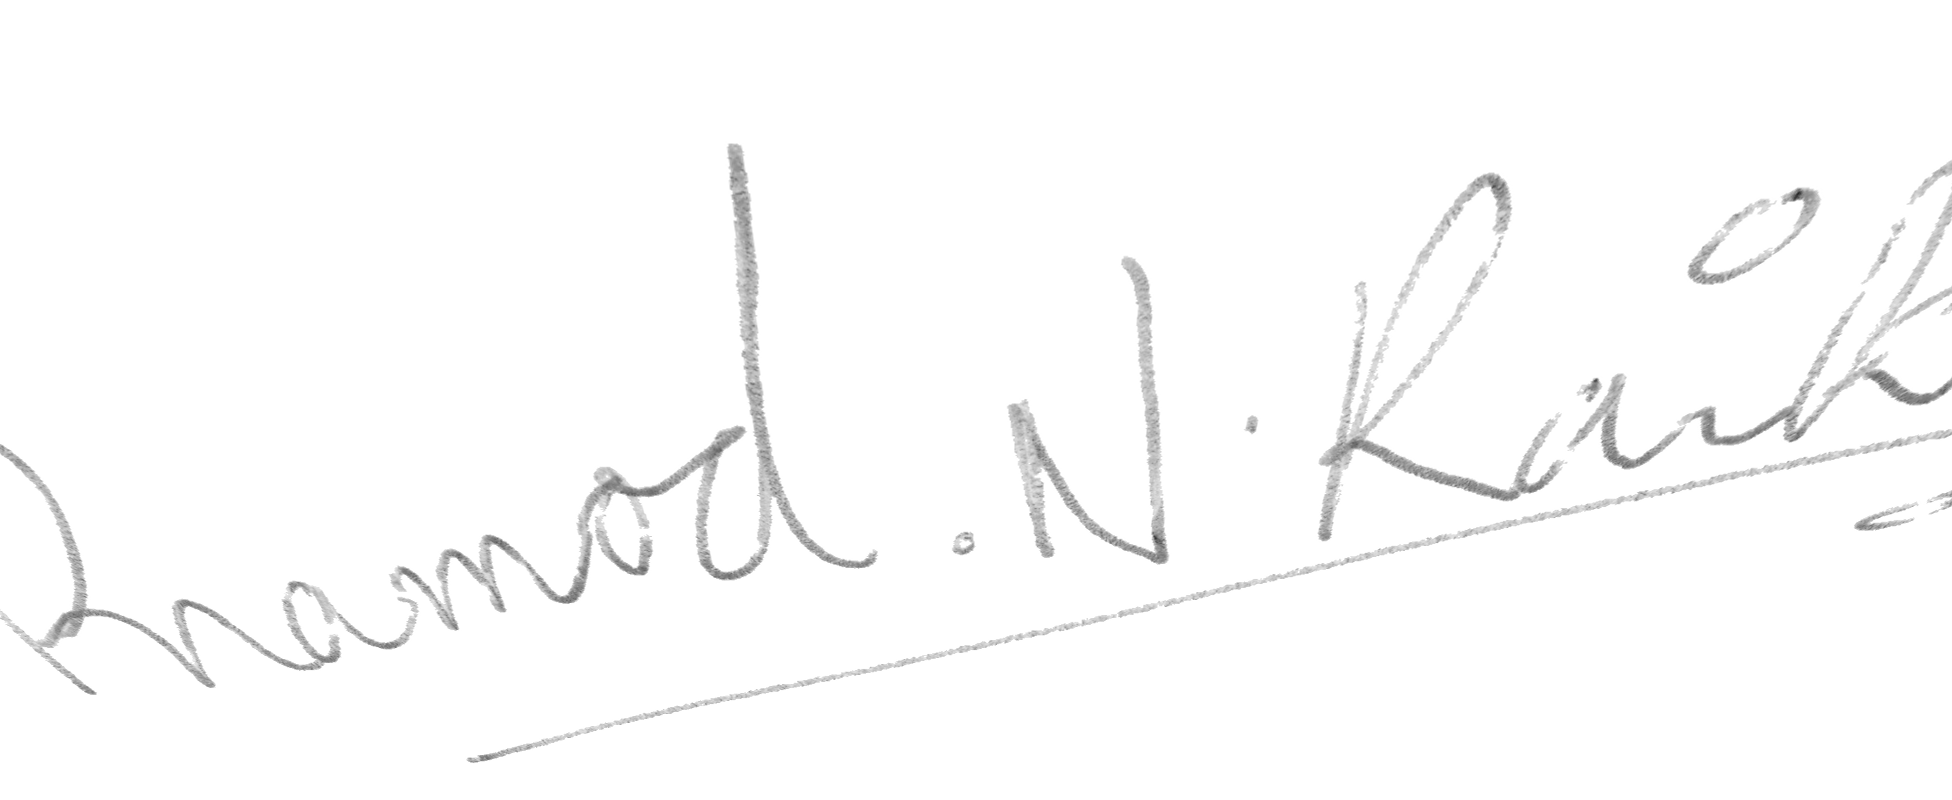 Pramod . N . Raik